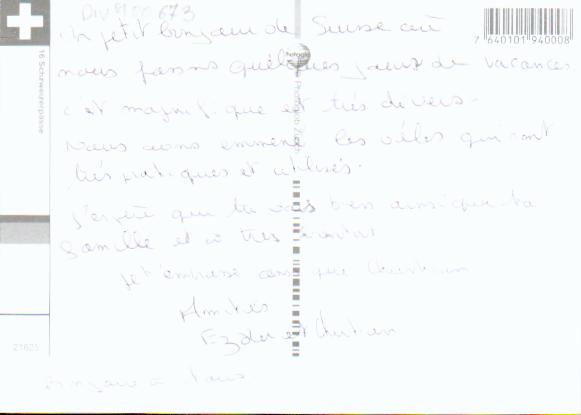 DIV 100 673
Un petit bonjour de Suisse où
nous passons quelques jours de vacances
c'est magnifique et très divers.
Nous avons emmené les vélos qui sont
très pratiques et utilisés.
J'espère que tu vas bien ainsi que ta
famille et à très bientôt
Je t'embrasse ainsi que Christian
Amitiés
et
Bonjour à tous
7 640101 940008
16 Schweizerpässe
Photoglob Zürich
21625